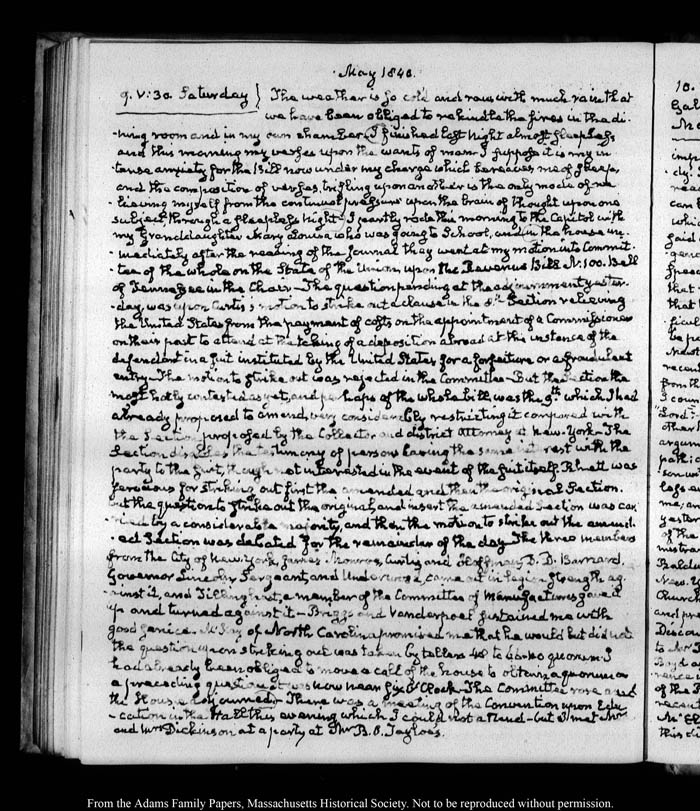 May 1840.
9. V:30. Saturday } The weather is so cold and raw with much rain that
we have been obliged to rekindle the fires in the di-
-ning room and in my own chamber. I finished last night almost sleepless
and this morning my verses upon the wants of man. I suppose it is my in-
tense anxiety for the Bill now under my charge which bereaves me of sleep,
and the composition of verses, trifling upon another is the only mode of re-
-lieving myself from the continual pressure upon the brain of thought upon one
subject, through a sleepless night. I partly rode this morning to the Capitol with
my Granddaughter Mary Louisa who was going to School, and in the house im-
-mediately after the reading of the Journal they went at my motion into Commit-
-tee of the whole on the State of the Union upon the Revenue Bill N. 100. Bell
of Tennessee in the Chair—The question pending at the adjournment yester-
-day, was upon Curtis's motion to strike out a clause in the 8th Section relieving
the United States from the payment of costs on the appointment of a Commissioner
on their part to attend at the taking of a deposition abroad at the instance of the
defendant in a suit instituted by the United States for a forfeiture or a fraudulent
entry—The motion to strike out was rejected in the Committee—But the Section the
most hotly contested as yet, and perhaps of the whole bill was the 9th which I had
already proposed to amend, very considerably restricting it compared with
the Section proposed by the Collector and district Attorney at New-York—The
Section the testimony of persons having the same interest with the
party to the suit, though not interested in the event of the suit itself. Rhett was
ferocious for striking out first the amended and then the original Section.
but the question to strike out the original, and insert the amended Section was car-
-ried by a considerable majority, and then the motion to strike out the amend-
-ed Section was debated for the remainder of the day. The three members
from the City of New-York, James Monroe, Curtis and Hoffman, D. D. Barnard.
Governor Lincoln, Sergeant, and Underwood, came out in strength ag-
-ainst it, and Tillinghast, a member of the Committee of Manufactures gave it
up and turned against it—Briggs and Vanderpoel sustained me with
good service. of North Carolina promised me that he would but did not
the question upon striking out was taken by tellers 48 to 45. no quorum. I
had already been obliged to move a call of the house to obtain a quorum on
a preceding question. it was now near six O'Clock—The Committee rose and
the House adjourned. There was a meeting of the Convention upon Edu-
-cation in the Hall this evening which I could not attend—but I met Mr
and Mrs Dickinson at a party at Mr B. O. Tayloe's.
10.
From the Adams Family Papers, Massachusetts Historical Society. Not to be reproduced without permission.